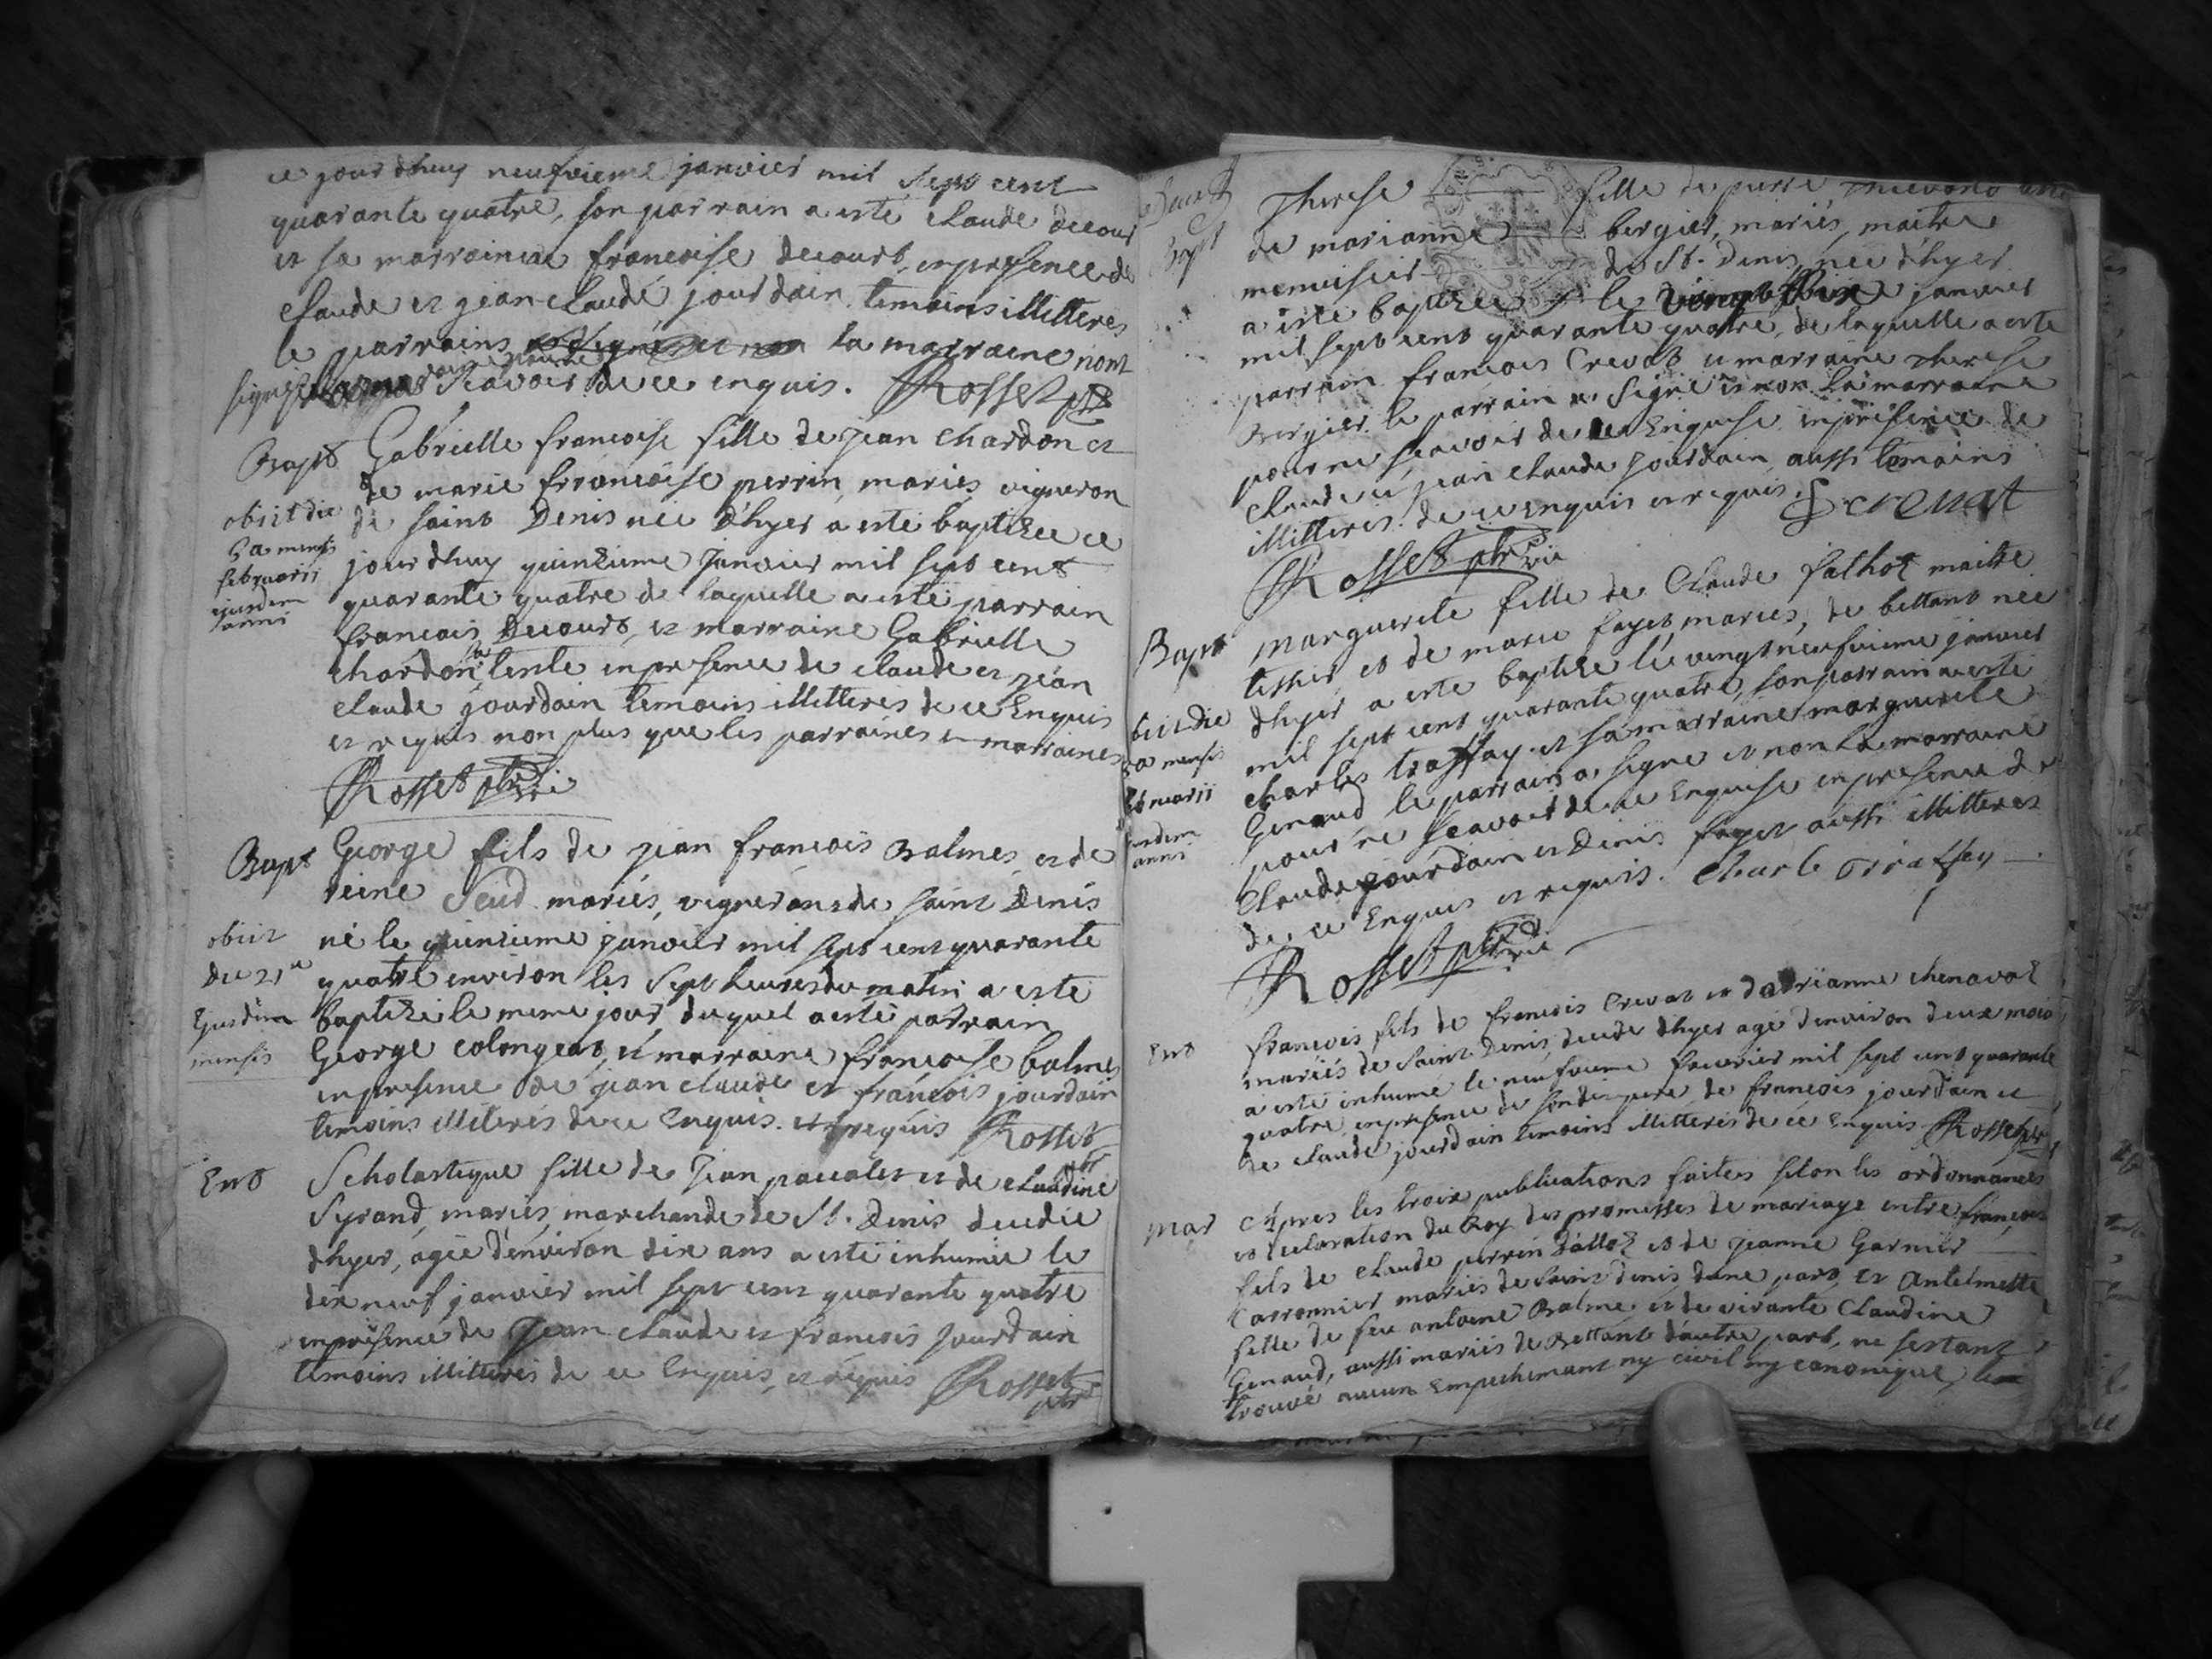 ce jour dhuy neufvieme janvier mil sept cent
quarante quatre, son parrain a esté claude decour
et sa marraine francoise decourt, en presence de
claude et jean claude jourdain temoins illitteres
le parrains la marraine n'ont
signé scavoir de ce enquis. Rosset ptre
Bapt Gabrielle francoise fille de jean chardon et
de marie francoise perrin, mariés vigneron
de saint Denis née d'hyer a esté baptizée ce
jour dhuy quinzieme janvier mil sept cent
quarante quatre de laquelle a esté parrain
francois Decourt, et marraine Gabrielle
chardon sa tente en presence de claude et jean
claude jourdain temoins illitteres de ce Enquis
et requis non plus que les parraines et marraines
obiit die
3a mensis
februarii
ejusdem
anni
Rosset ptre
Bapt George fils de jean francois Balmes, et de
reine Seud mariés, vignerons de saint Denis
né le quinzieme janvier mil sept cent quarante
quatre environ les sept heures du matin a esté
baptizé le meme jour, duquel a esté parrain
George colongeat, et marraine francoise balmes
en presence de jean claude et francois jourdain
temoins illiterés de ce Enquis et requis Rosset
ptre
obiit
die 21a
Ejusdem
mensis
Ent Scholastique fille de Jean pascalet et de claudine
Syrand, mariés, marchands de St. Denis decedée
dhyer, agée d'environ dix ans a esté inhumée le
dix neuf janvier mil sept cent quarante quatre
en présence de Jean claude et francois Jourdain
temoins illitterés de ce Enquis, et requis Rosset
ptre
Bapt
Therese fille de pierre
de marianne bergier, mariés, maitre
menuisier de St. Denis, née d'hyer
a esté baptizée le janvier
mil sept cent quarante quatre, de laquelle a esté
parrain francois Crevat et marraine Therese
Bergier le parrain a signé et non la marraine
pour ne scavoir de ce Enquise en présence de
claude et jean claude Jourdain, aussi temoins
illitteres de ce enquis et requis. f crevat
Rosset ptre
Bapt marguerite fille de Claude falhot maitre
tessier, et de marie fayet, mariés, de bettant née
dhyer a esté baptizée le vingt neufvieme janvier
mil sept cent quarante quatre, son parrain a esté
charles traffay et sa marraine marguerite
Genaud le parrain a signé et non la marraine
pour ne scavoir de ce Enquise en presence de
Claude jourdain et Denis fayet aussi illitteres
de ce Enquis et requis. Charle traffey
obiit die
3a mensis
februarii
ejusdem
anni
Rosset ptre
Ent francois fils de francois Crevat et dadrianne chenavat
mariés de saint Denis, decedé dhyer agé d'environ deux mois
a esté inhumé le neufvieme fevrier mil sept cent quarante
quatre en presence de sondit pere, de francois jourdain et
de claude jourdain temoins illitterés de ce Enquis Rosset ptre
mar Apres les trois publications faites selon les ordonnances
et declaration du Roy des promesses de mariage entre francois
fils de claude perrin dalloz et de jeanne Garnier
Carronnier mariés de saint denis dune part, et Antelmette
fille de feu antoine Balme et de vivante Claudine
Genaud, aussi mariés de Bettant d'autre part, ne sestant
trouvé aucun Empechemant ny civil ny canonique, le